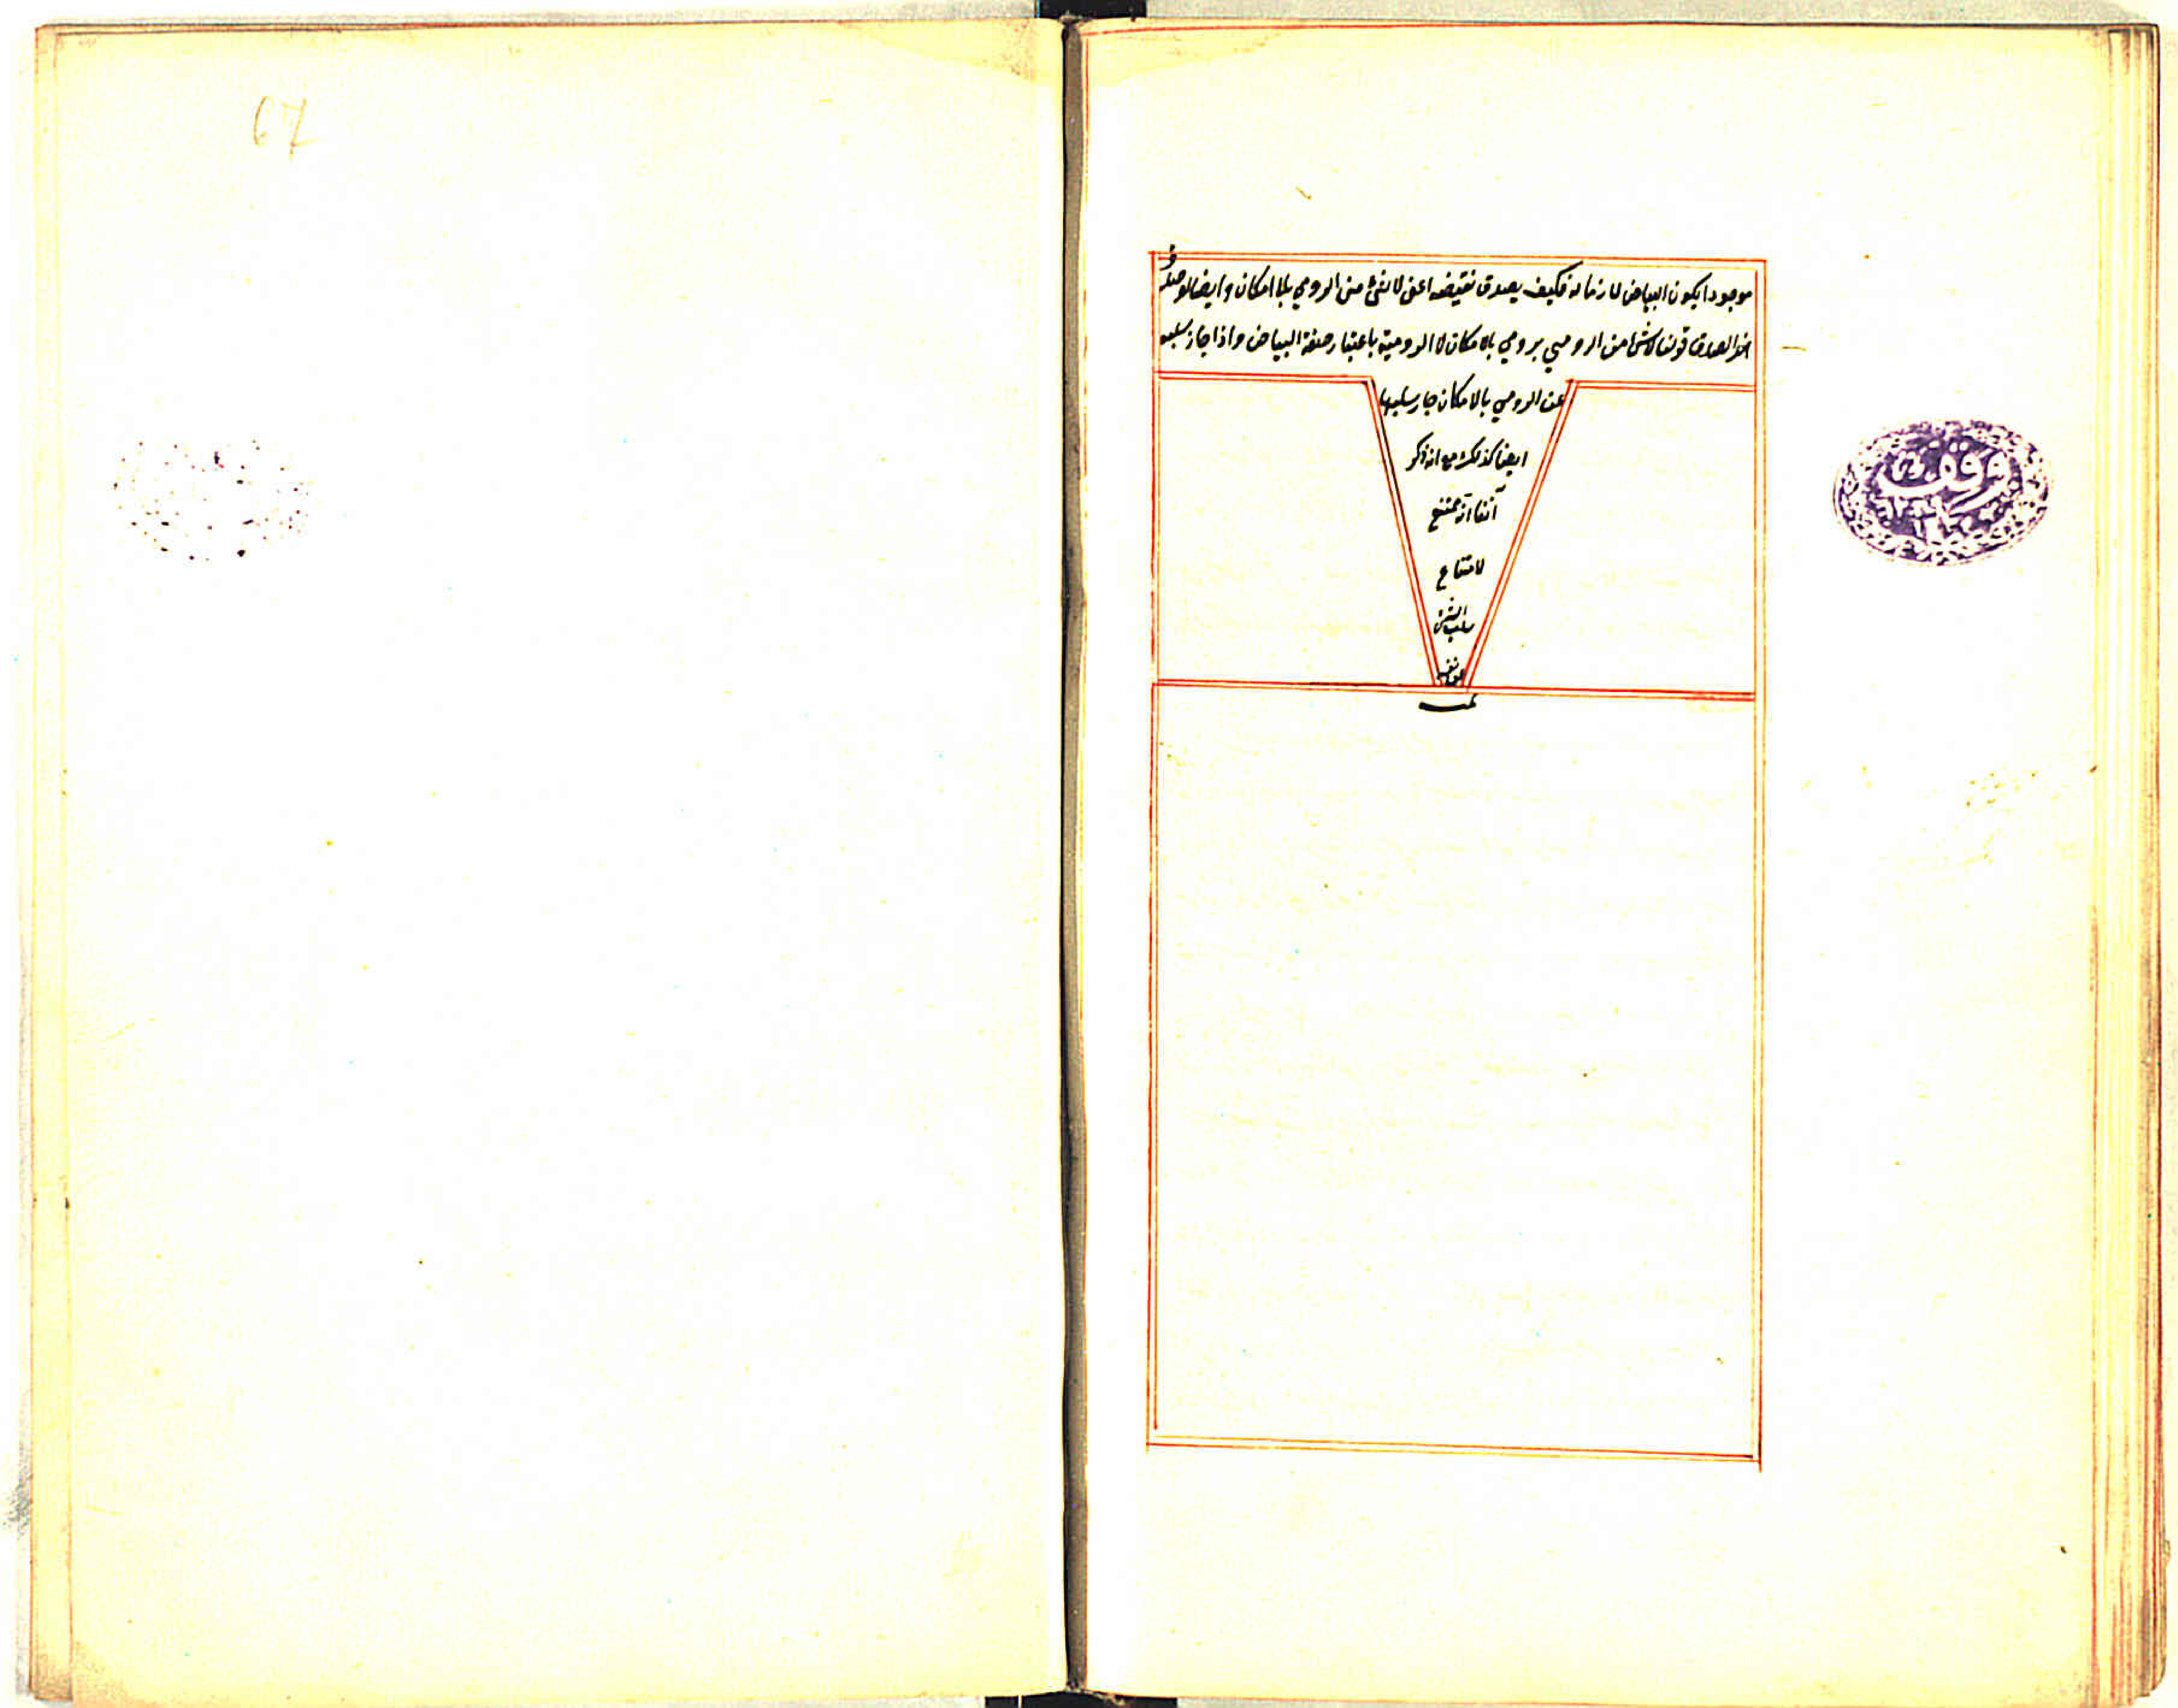 67
موجودا يكون البياض لازما له فكيف يصدق نقيضه اعنى لا شئ من الرومي بالامكان وايضا لو صدق
لصدق قولنا لا شئ من الرومي برومي بالامكان لا الرومية باعتبار صفة البياض واذا جاز سلبه
عن الرومي بالامكان جاز سلبها
ايضا كذلك مع انه ذكر
آنفا انه ممتنع
لامتناع
سلب الشئ
عن نفسه
تمت
وقف